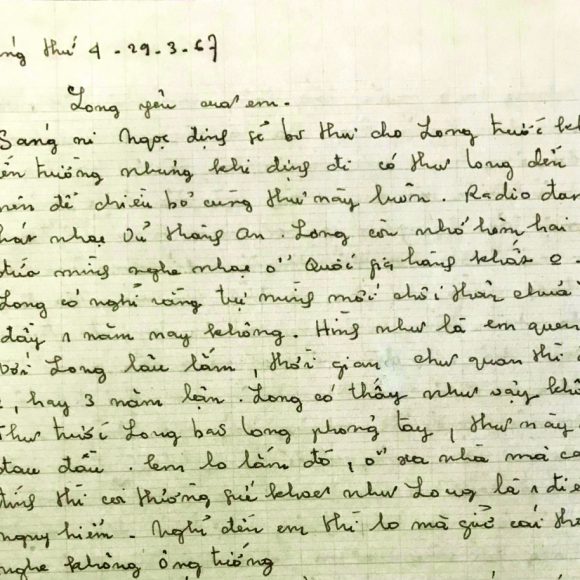 ng thứ 4 - 29.3.67
Long yêu của em.
Sáng ni Ngọc định sẽ bỏ thư cho Long trước kh
đến trường nhưng khi định đi có thư Long đến
nên để chiều bỏ cùng thư này luôn. Radio đan
hát nhạc Vũ Thành An. Long còn nhớ hôm hai
đứa mình nghe nhạc ở Quốc gia hàng khắc o.
Long có nghĩ rằng tụi mình mới chơi thân chưa
đầy 1 năm nay không. Hình như là em quen
với Long lâu lắm, thời gian như quen thì
2, hay 3 năm lận. Long có thấy như vậy khô
Thư trước Long bảo Long phỏng tay, thư này
đau đầu. Em lo lắm đó, ở xa nhà mà
thì coi thường sức khoẻ như Long là 1 điề
nguy hiểm. Nghĩ đến em thì lo mà giữ cái th
nghe không ông tướng